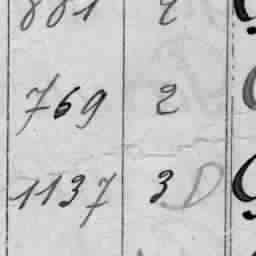 881 2
769 2
1137 3 D